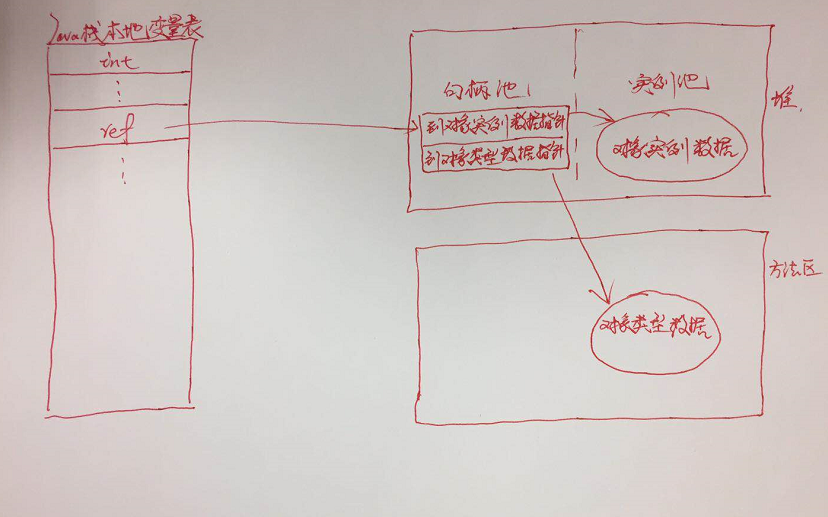 Java栈本地变量表
int
⋮
ref
⋮
句柄池
到对象实例数据指针
到对象类型数据指针
实例池
对象实例数据
堆
方法区
对象类型数据